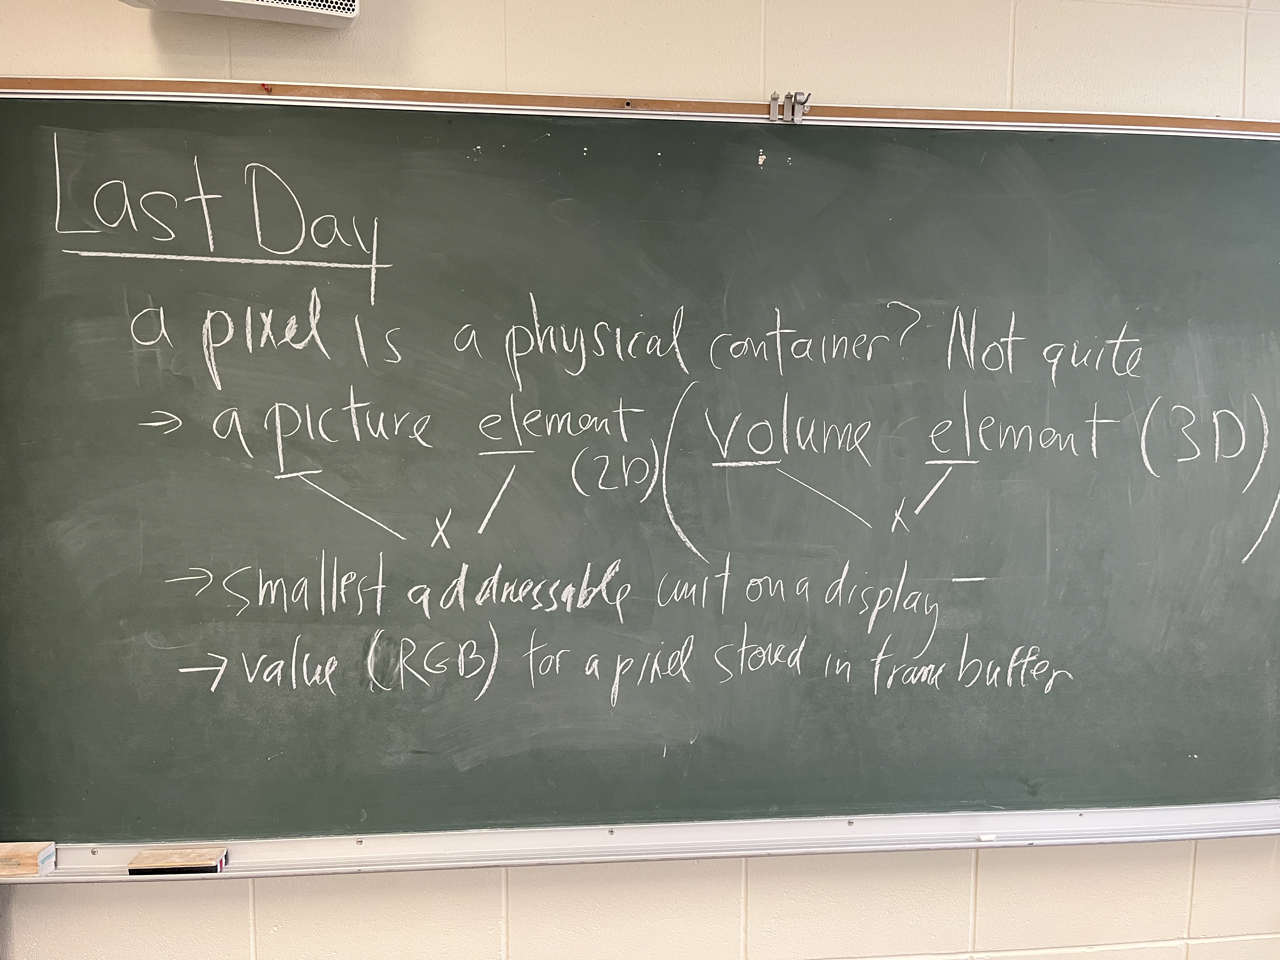 Last Day
a pixel is a physical container? Not quite
→ a picture element (2D) (volume element (3D))
x x
→ smallest addressable unit on a display
→ value (RGB) for a pixel stored in frame buffer